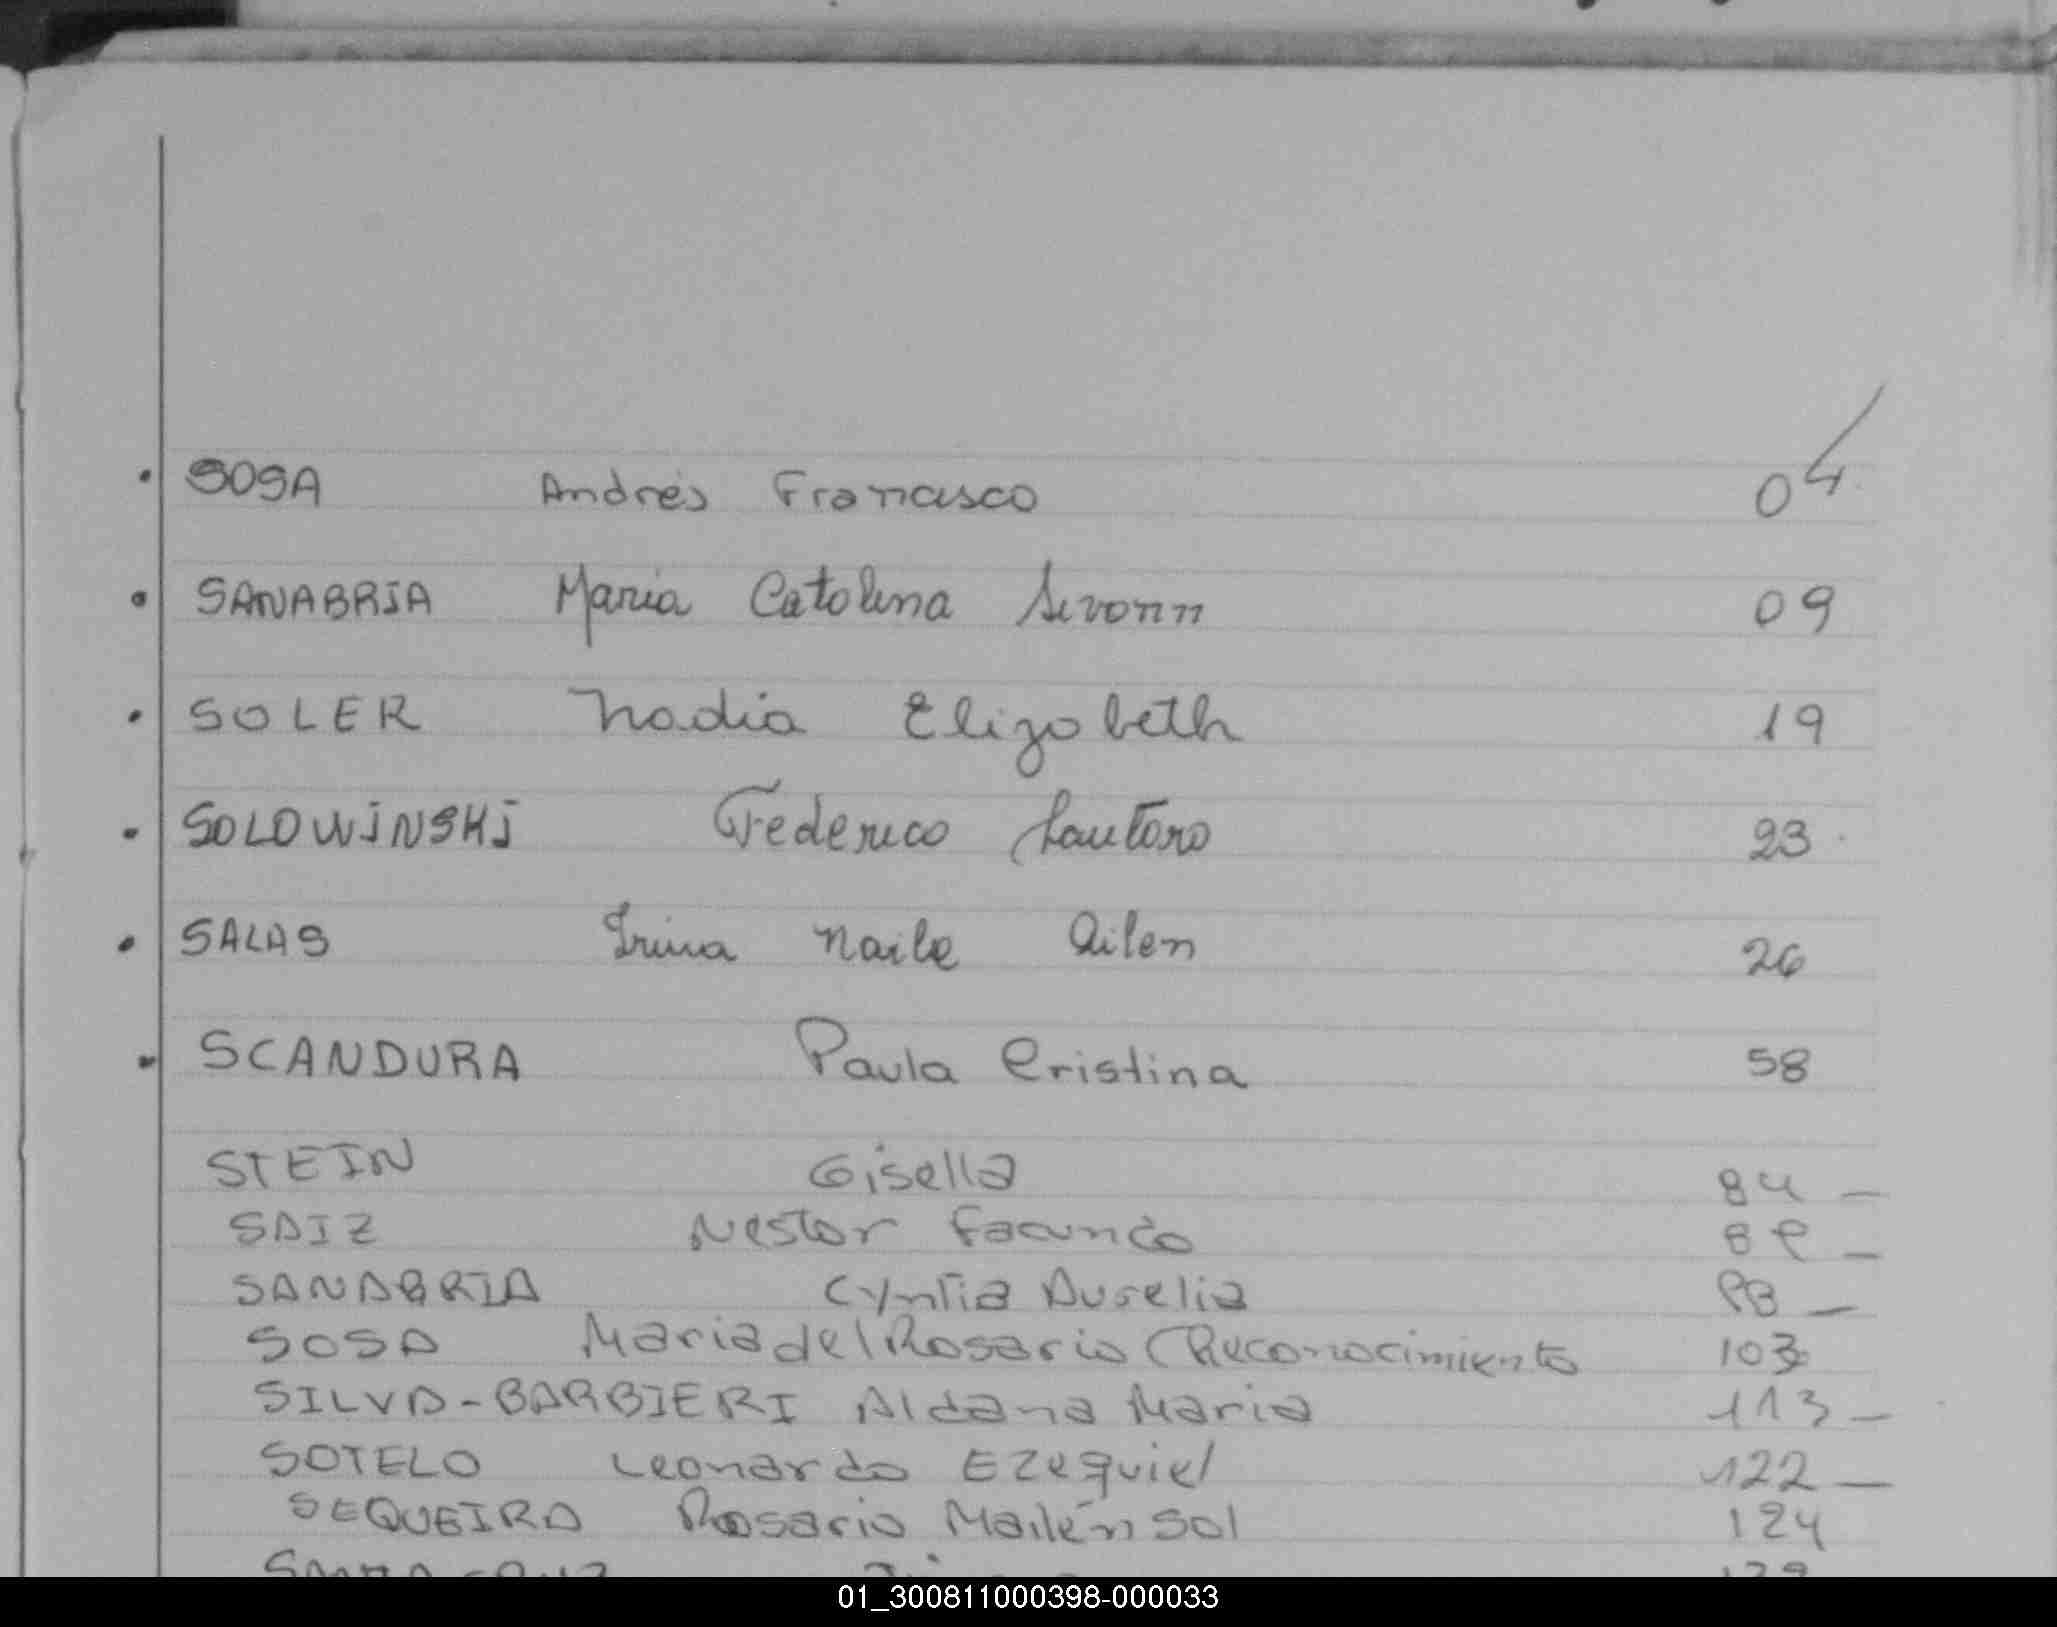 SOSA Andrés Francisco 04
SANABRIA Maria Catalina Sivonn 09
SOLER Nadia Elizabeth 19
SOLOWiNSKi Federico Lautaro 23
SALAS Irina Naile Ailen 26
SCANDURA Paula Cristina 58
STEIN Gisella 84 —
SAIZ Nestor Facundo 89 —
SANABRIA Cyntia Aurelia 93 —
SOSA Maria del Rosario (Reconocimiento 103
SILVA-BARBIERI Aldana Maria 113 —
SOTELO Leonardo Ezequiel 122 —
SEQUEIRA Rosario Mailén Sol 124
01_300811000398-000033